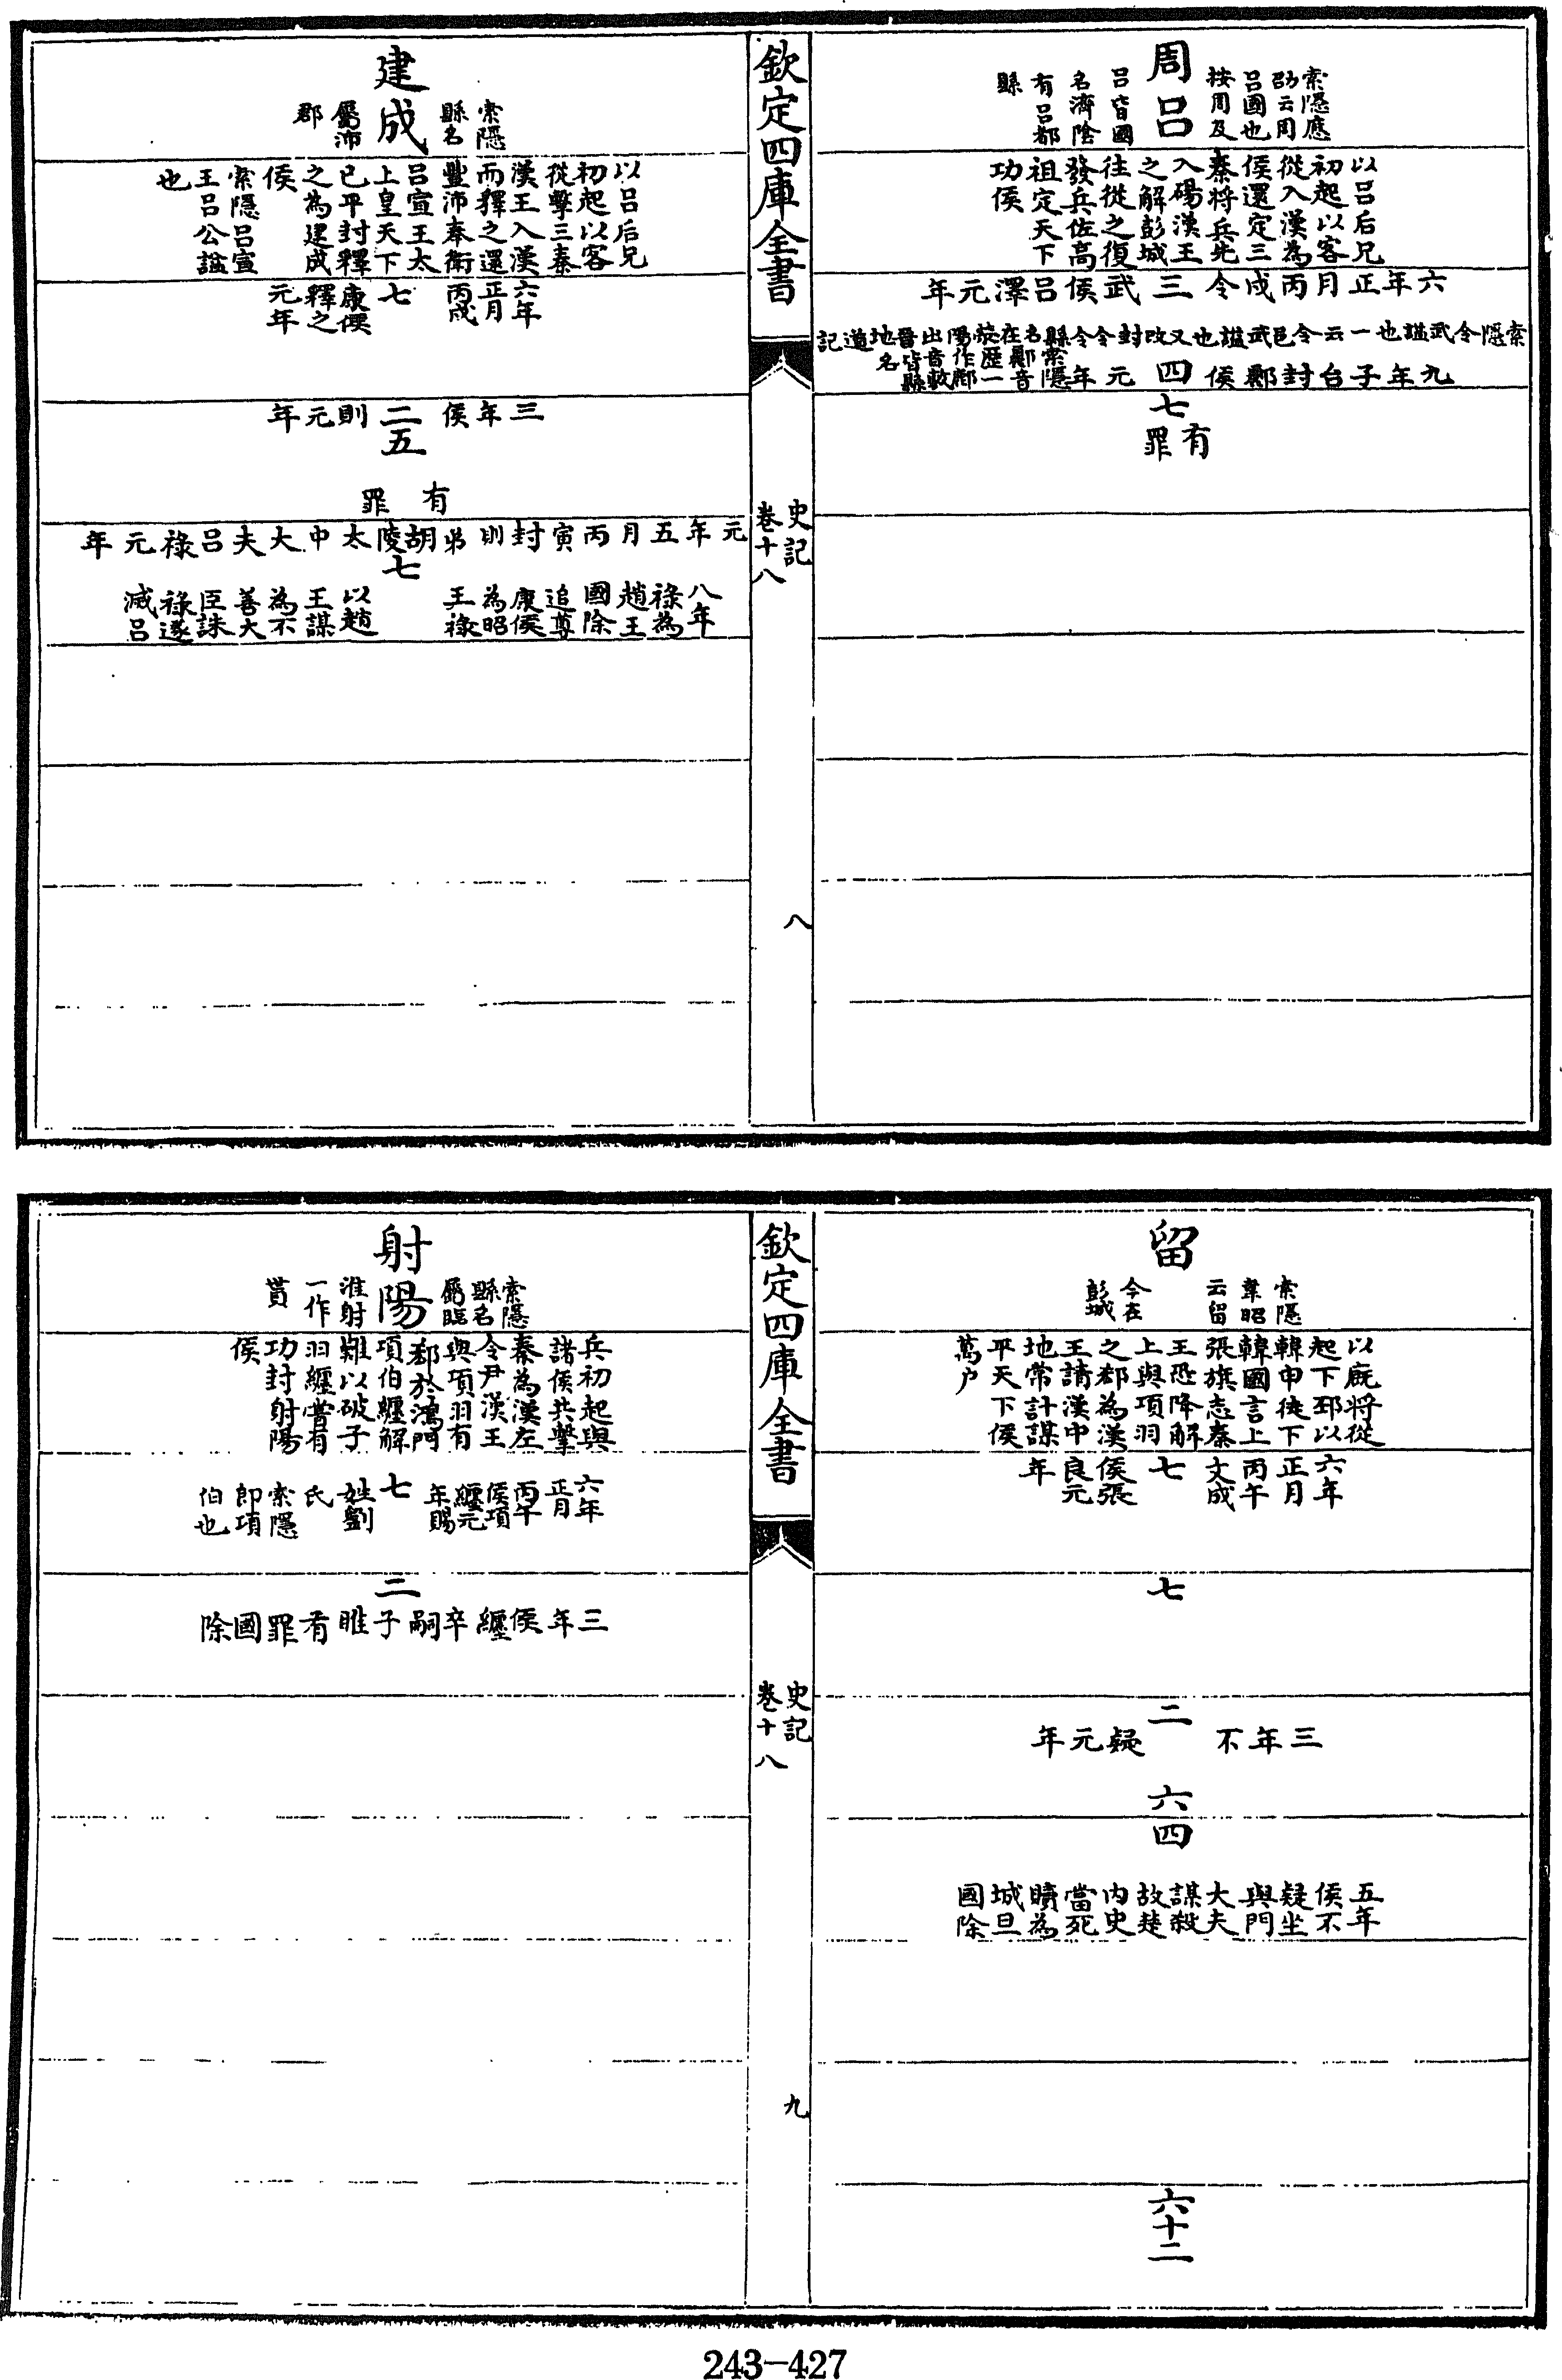 周呂
索隱應
劭云周
呂國也
按周及
呂皆國
名濟陰
有呂都
縣
以呂后兄
初起以客
從入漢為
侯還定三
秦將兵先
入碭漢王
之解彭城
往從之復
發兵佐高
祖定天下
功侯
六年正月丙戌令三武侯呂澤元年
索隱令武諡也一云令邑武諡也又改封令令縣名在滎陽出晉地道記
九年子台封酈侯四元年
索隱
酈音
歷一
作鄜
音敷
皆縣
名
七
有罪
欽定四庫全書
史記
卷十八
八
建成
索隱
縣名
屬沛
郡
以呂后兄
初起以客
從擊三秦
漢王入漢
而釋之還
豐沛奉衛
呂宣王太
上皇天下
已平封釋
之為建成
侯
索隱呂宣
王呂公諡
也
六年
正月
丙戌
七
康侯
釋之
元年
三年侯二則元年
五
有罪
元年五月丙寅封則弟胡陵太中大夫呂祿元年
七
八年
祿為
趙王
國除
追尊
康侯
為昭
王祿
以趙
王謀
為不
善大
臣誅
祿遂
滅呂
留
索隱
韋昭
云留
今在
彭城
以廐將從
起下邳以
韓申徒下
韓國言上
張旗志秦
王恐降解
上與項羽
之郄為漢
王請漢中
地常計謀
平天下侯
萬户
六年
正月
丙午
文成
七
侯張
良元
年
七
二
三年不疑元年
六
四
五年
侯不
疑坐
與門
大夫
謀殺
故楚
內史
當死
贖為
城旦
國除
六十二
欽定四庫全書
史記
卷十八
九
射陽
索隱
縣名
屬臨
淮射
一作
貰
兵初起與
諸侯共擊
秦為漢左
令尹漢王
與項羽有
郄於鴻門
項伯纒解
難以破子
羽纒嘗有
功封射陽
侯
六年
正月
丙午
侯項
纒元
年賜
七
姓劉
氏
索隱
即項
伯也
二
三年侯纒卒嗣子睢有罪國除
243-427